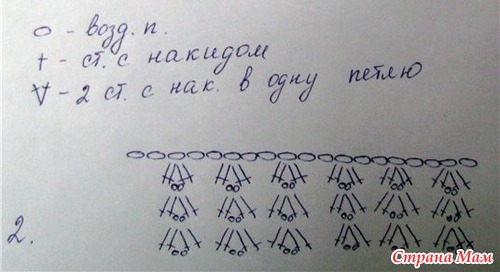 o - возд. п.
† - ст. с накидом
V - 2 ст. с нак. в одну петлю
2.
Страна Мам